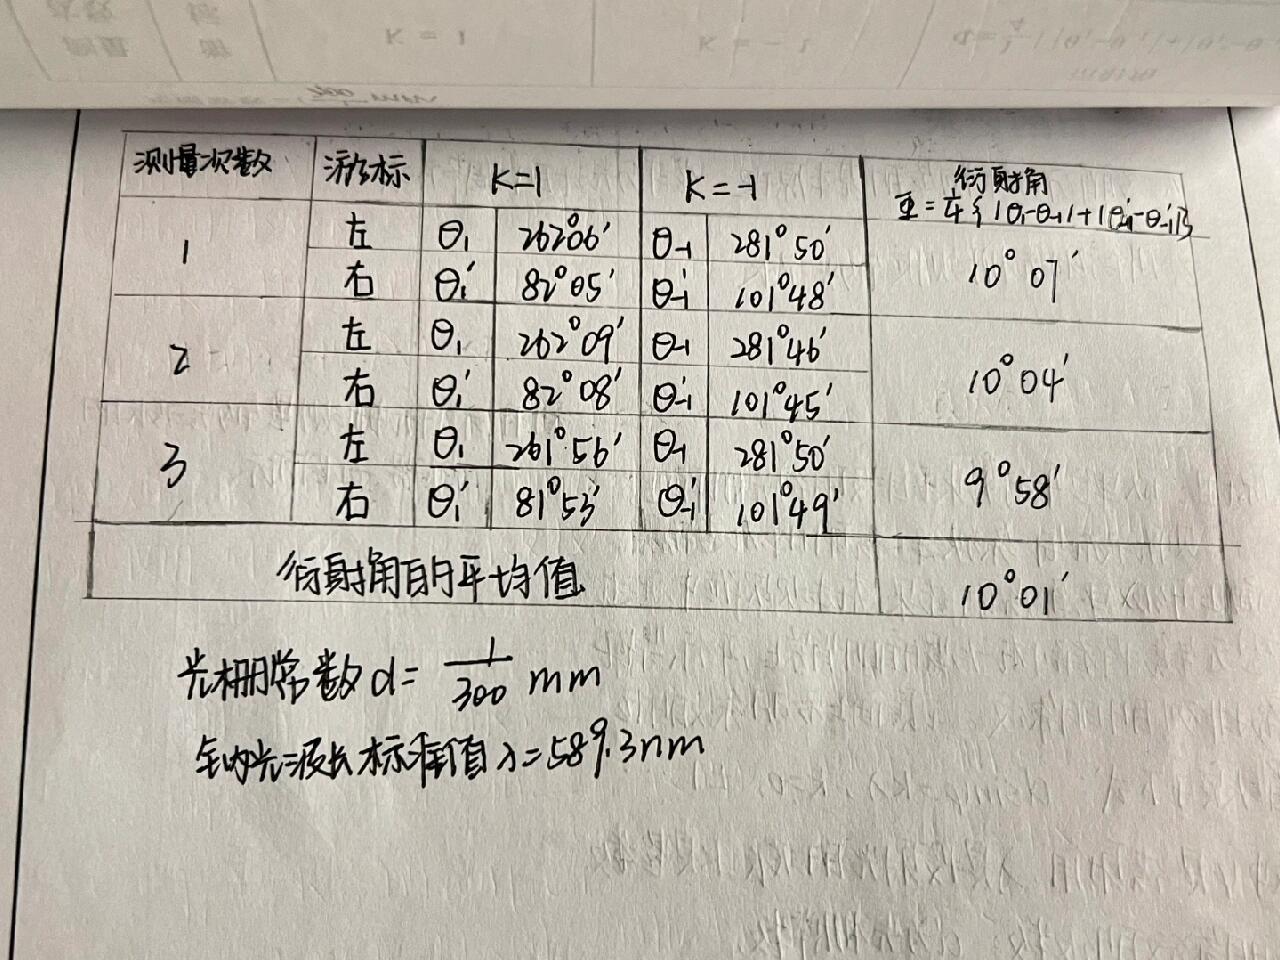 测量次数 游标 K=1 K=-1 衍射角
Φ=¼{|θ₁-θ₋₁|+|θ₁'-θ₋₁'|}
1 左 θ₁ 262°06' θ₋₁ 281°50' 10°07'
右 θ₁' 82°05' θ₋₁' 101°48'
2 左 θ₁ 262°09' θ₋₁ 281°46' 10°04'
右 θ₁' 82°08' θ₋₁' 101°45'
3 左 θ₁ 261°56' θ₋₁ 281°50' 9°58'
右 θ₁' 81°53' θ₋₁' 101°49'
衍射角的平均值 10°01'
光栅常数d= 1/300 mm
钠光波长标准值λ=589.3nm